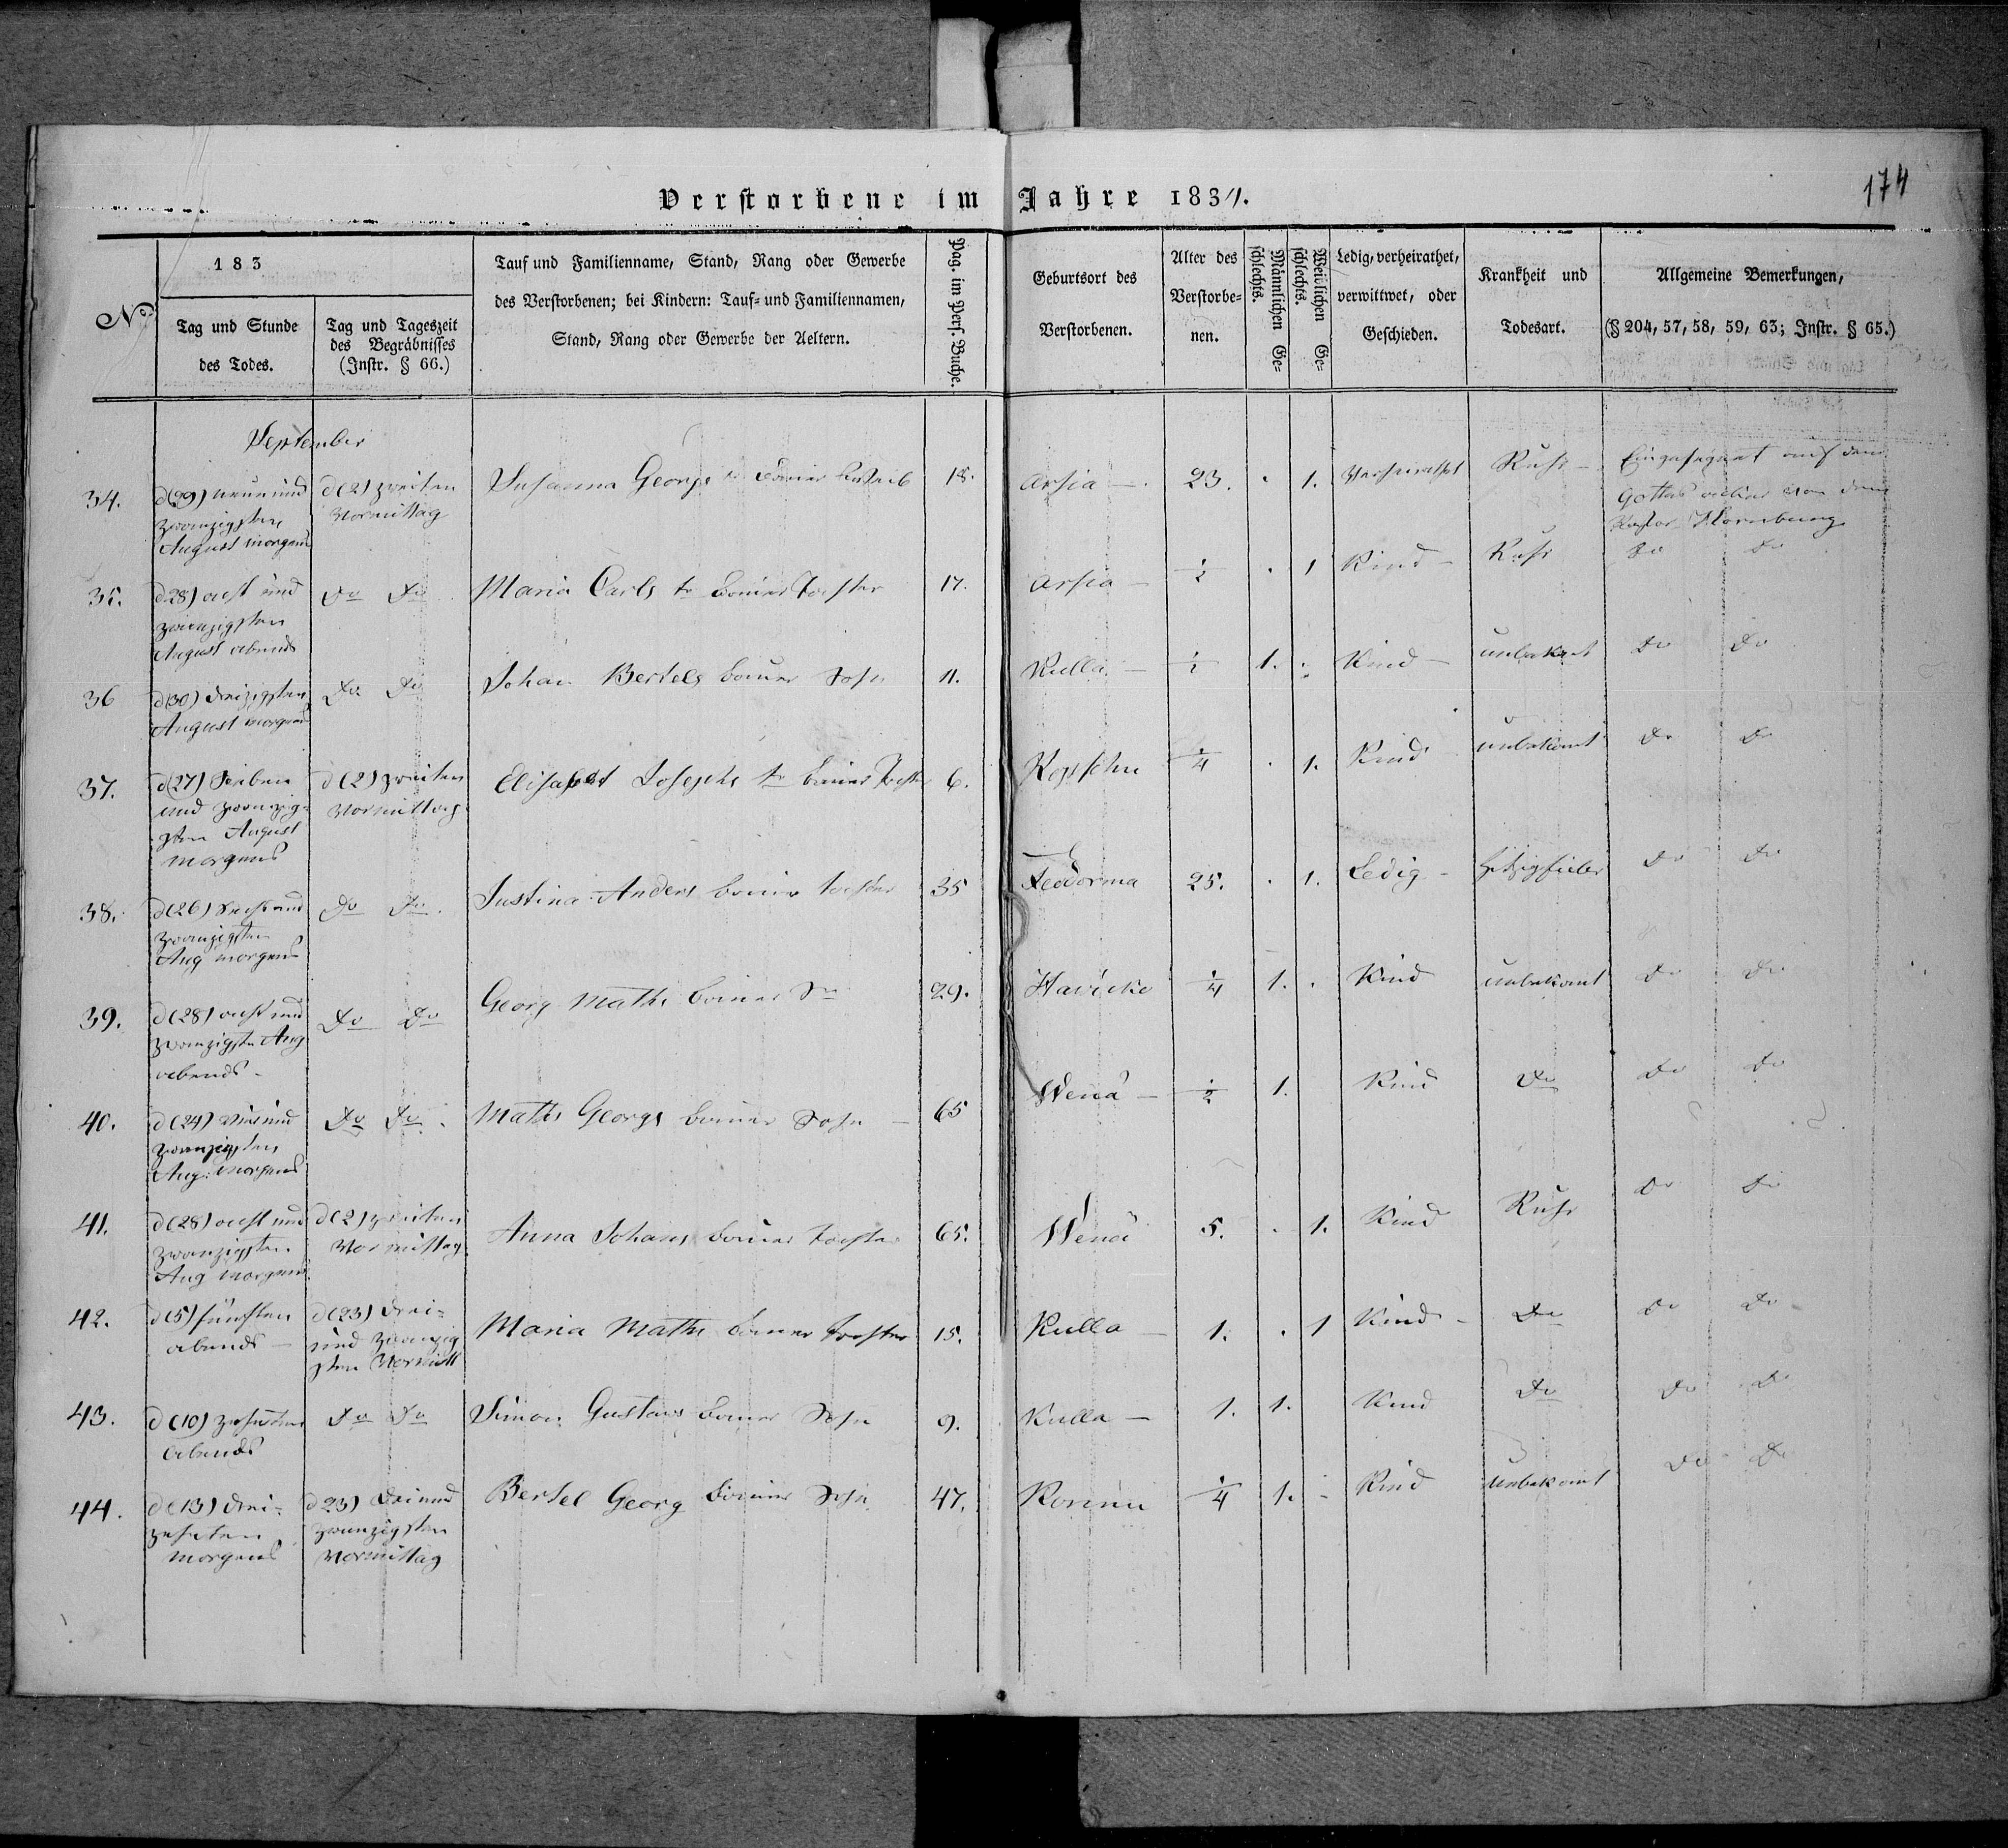 174
Verstorbene im Jahre 1834.
No.
183
Tag und Stunde
des Todes.
Tag und Tageszeit
des Begräbnisses
(Instr. § 66.)
Tauf und Familienname, Stand, Rang oder Gewerbe
des Verstorbenen; bei Kindern: Tauf- und Familiennamen,
Stand, Rang oder Gewerbe der Aeltern.
Pag. im Pers. Buche.
Geburtsort des
Verstorbenen.
Alter des
Verstorbe-
nen.
Männlichen Ge-
schlechts.
Weiblichen Ge-
schlechts.
Ledig, verheirathet,
verwittwet, oder
Geschieden.
Krankheit und
Todesart.
Allgemeine Bemerkungen,
(§ 204, 57, 58, 59, 63; Instr. § 65.)
September
34.
d (29) neun und
zwanzigsten
August morgens
d (2) zweiten
Vormittag
Susanna Georgs
18.
Arsia
23.
1.
Verheirathet
Ruhr
Eingesegnet auf dem
Gottes acker von dem
Pastor Hornburg
35.
d 28) acht und
zwanzigsten
August abends
Do Do
Maria Carls tr bauer tochter
17.
Arsia
1/2
1
Kind
Ruhr
Do Do
36
d (30) dreizigsten
August morgens
Do Do
Johan Bertels bauer Sohn
11.
Kulla
1/2
1.
Kind
unbekant
Do Do
37.
d (27) Sieben
und zwanzig-
sten August
morgens
d (2) zweiten
Vormittag
Elisabet Josephs tr bauer Tocht
6.
1/4
1.
Kind
unbekant
Do Do
38.
d (26) Sechs und
zwanzigsten
Aug morgens
Do Do
Justina Anders bauer tochter
35
Feodorma
25.
1.
Ledig
Do Do
39.
d (28) acht und
zwanzigsten Aug
abends
Do Do
Georg Maths bauer Sn
29.
1/4
1.
Kind
unbekant
Do Do
40.
d (24) vier und
zwanzigsten
Aug: morgens
Do Do
Maths Georgs bauer Sohn
65
Wenä
1/2
1.
Kind
Do
Do Do
41.
d (28) acht und
zwanzigsten
Aug morgens
d (2) zweiten
Vormittag
Anna Johans bauer tochter
65.
Wenä
5.
1.
Kind
Ruhr
Do Do
42.
d (5) fünften
abends
d (23) drei-
und zwanzig
sten Vormitt
Maria Maths bauer tochter
15.
Kulla
1.
1
Kind
Do
Do Do
43.
d (10) zehnten
abends
Do Do
Simon Gustavs bauer Sohn
9.
Kulla
1.
1.
Kind
Do
Do Do
44.
d (13) drei-
zehnten
morgens
d 23) drei und
zwanzigsten
Vormittag
Bertel Georg bauer Sohn
47.
1/4
1.
Kind
Unbekant
Do Do